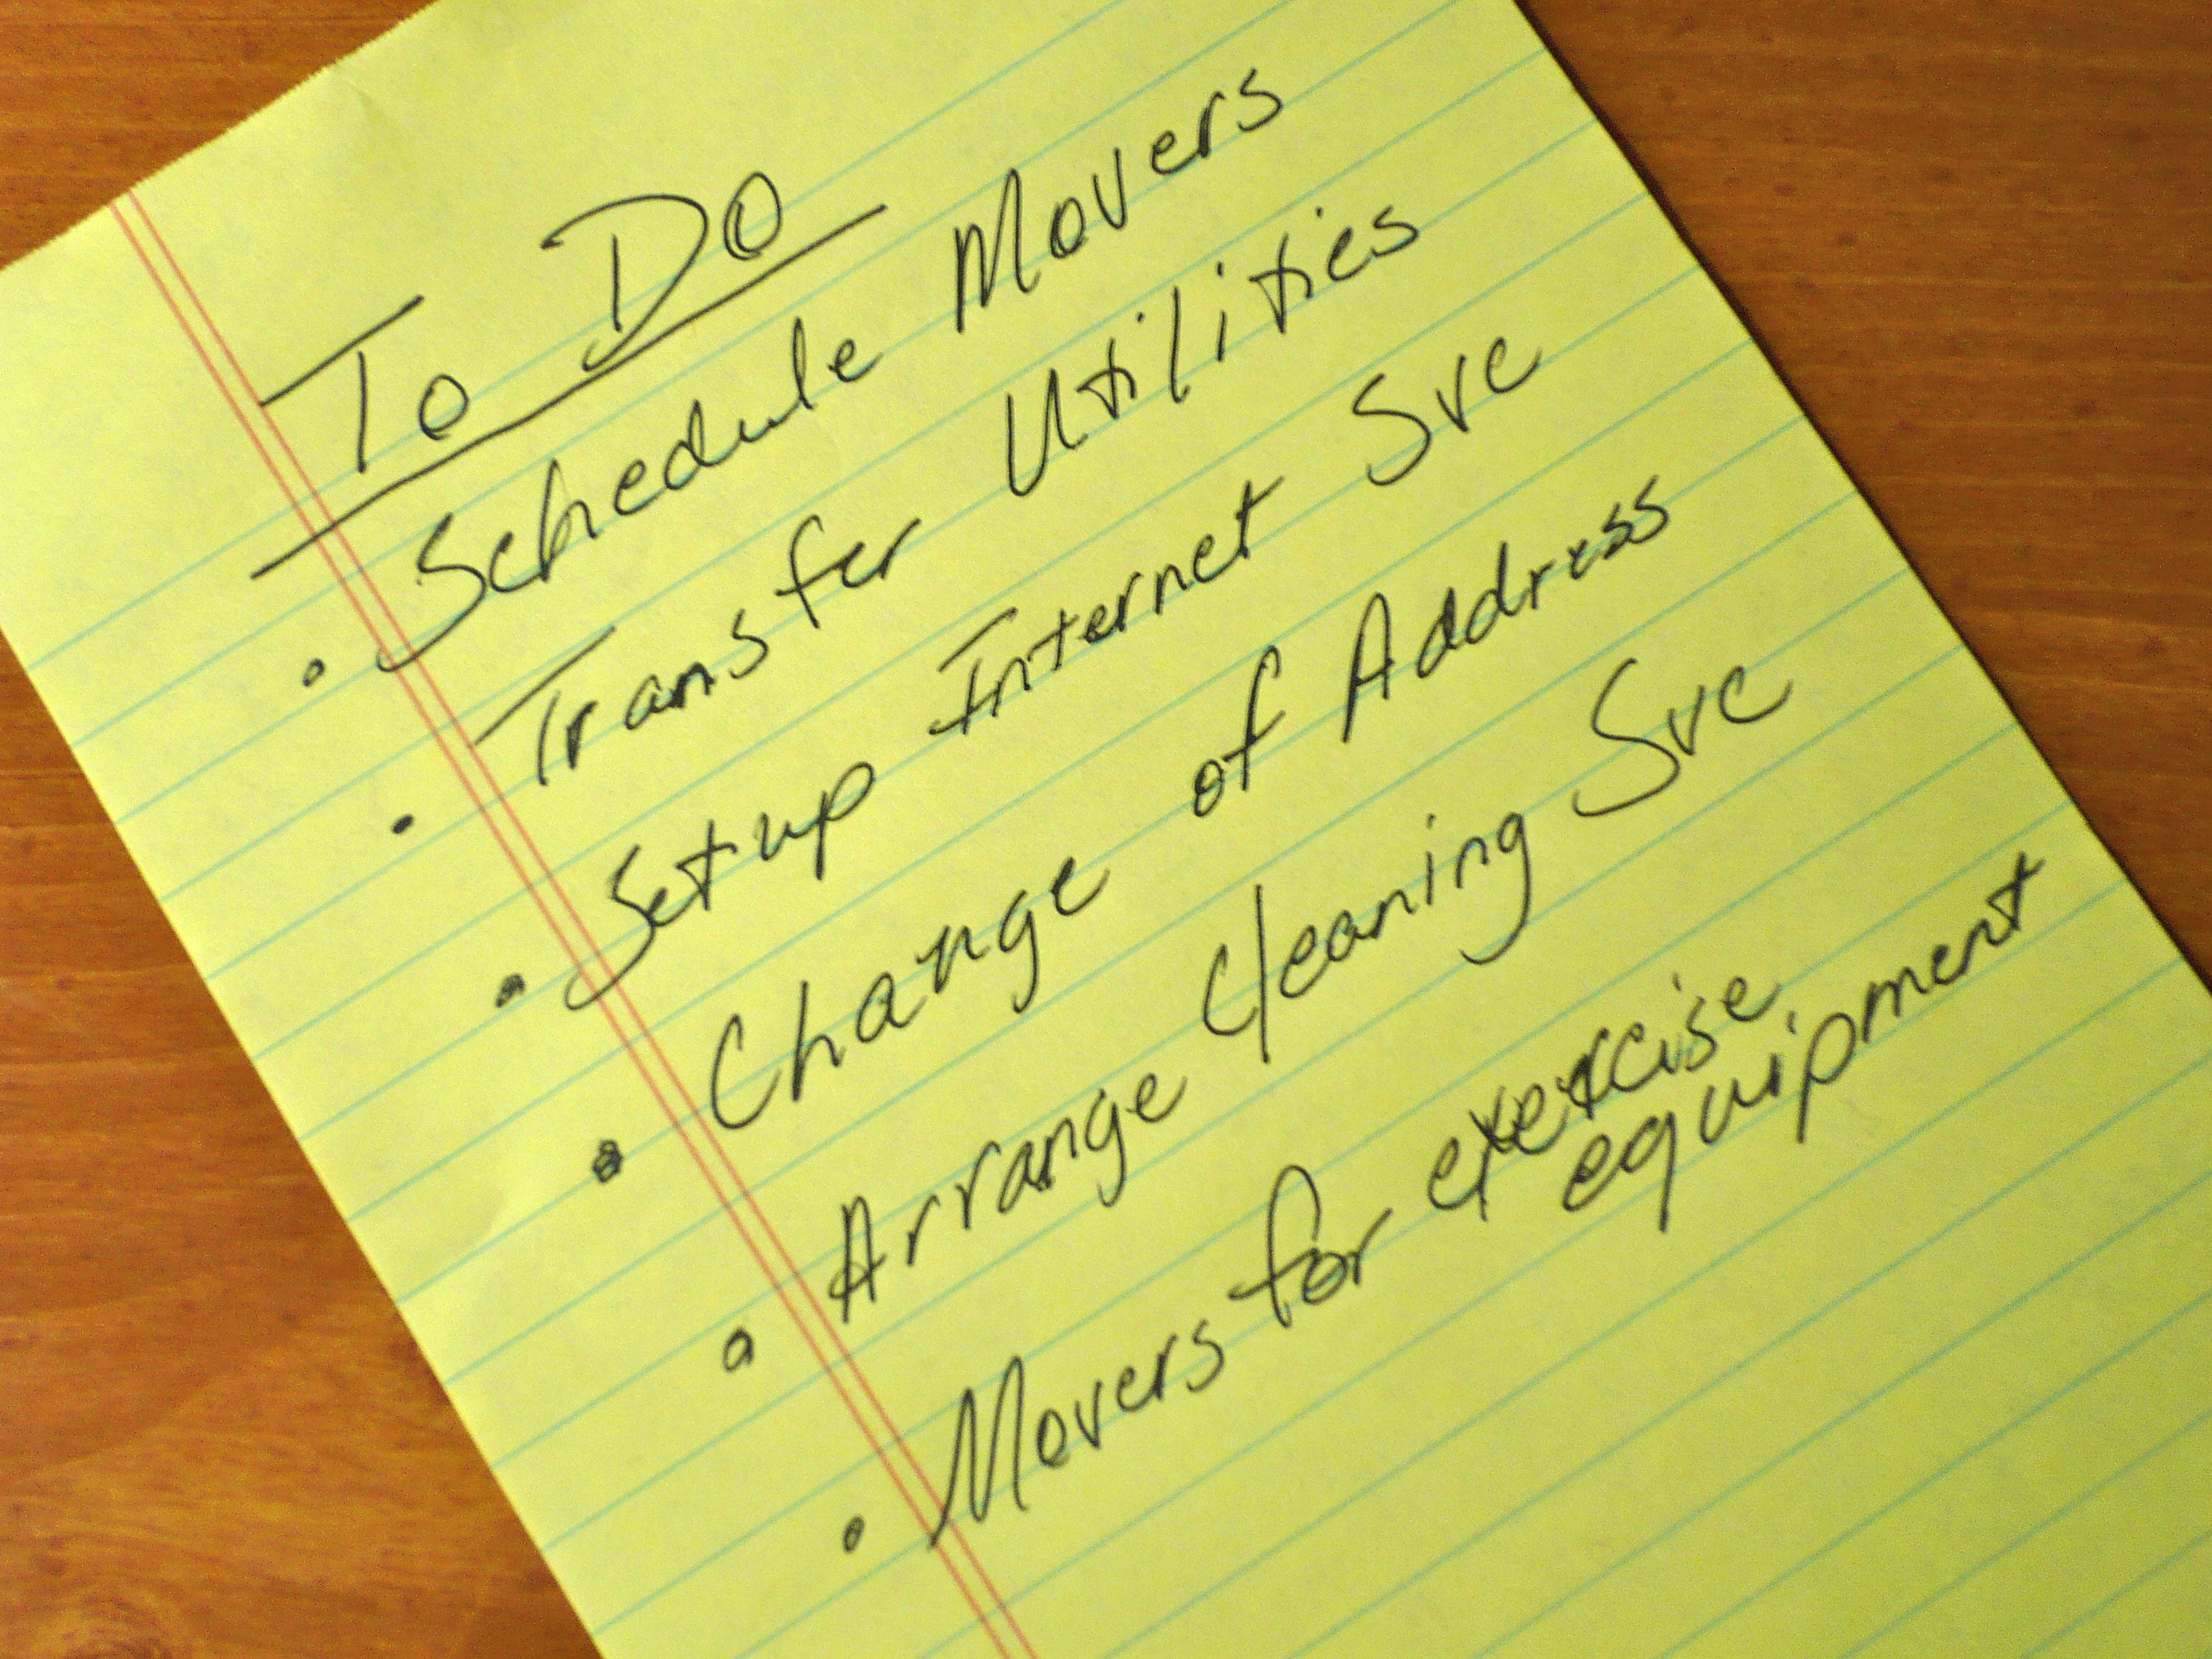 To Do
• Schedule Movers
• Transfer Utilities
• Setup Internet Svc
• Change of Address
• Arrange Cleaning Svc
• Movers for exercise
equipment